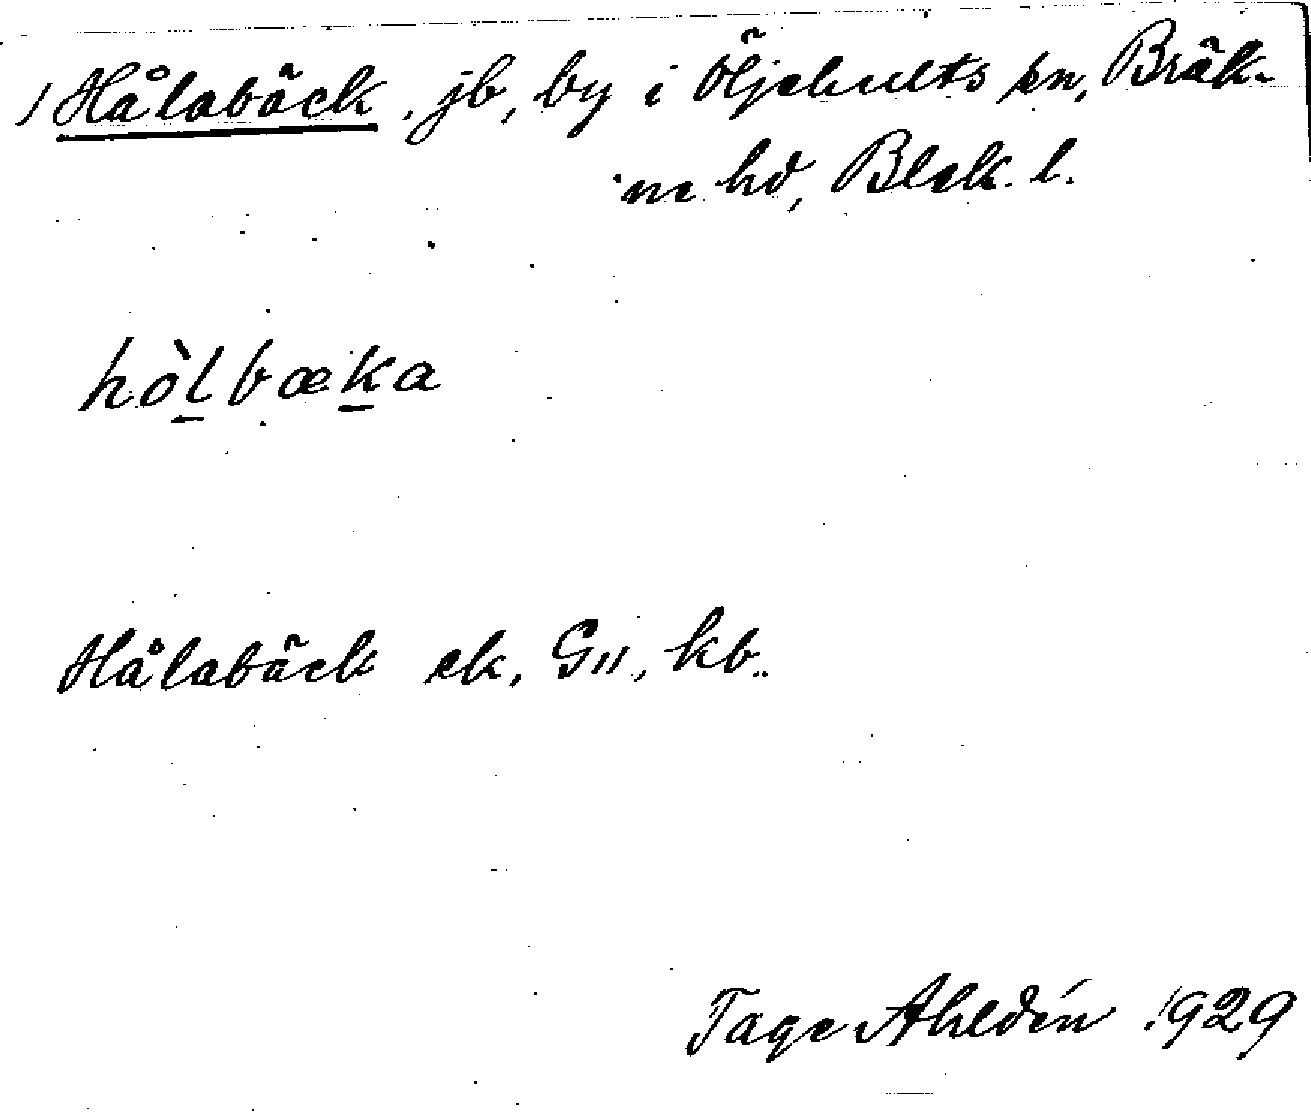 / Hålabäck, jb, by i Öljehults sn, Bräk-
ne hd, Blek. l.
hòl̠bæk̠a
Hålabäck ek, G11, kb.
Tage Ahldén 1929